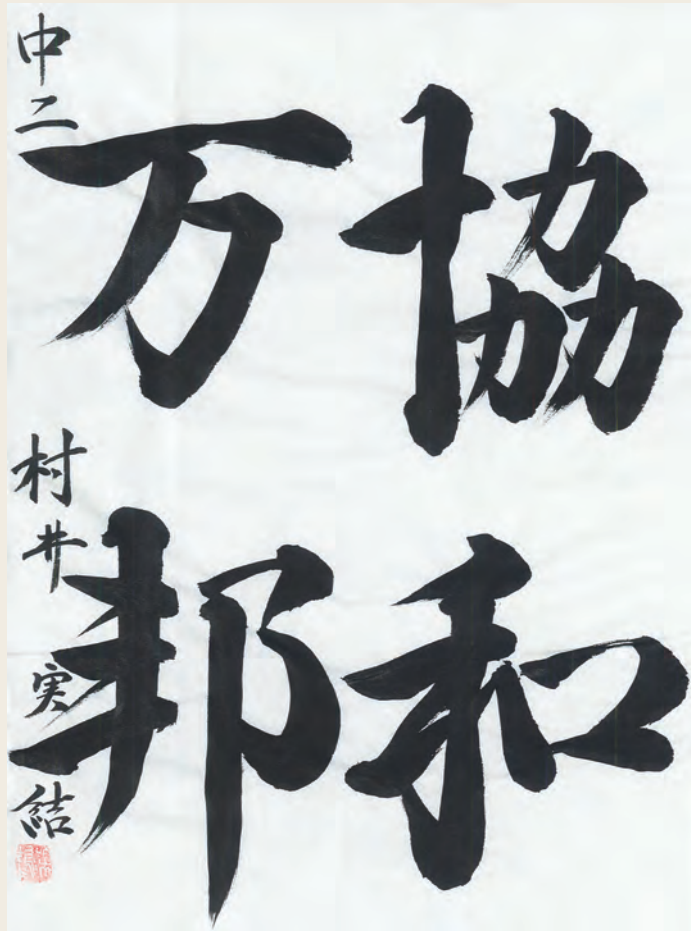 協和
万邦
中二 村井 実結